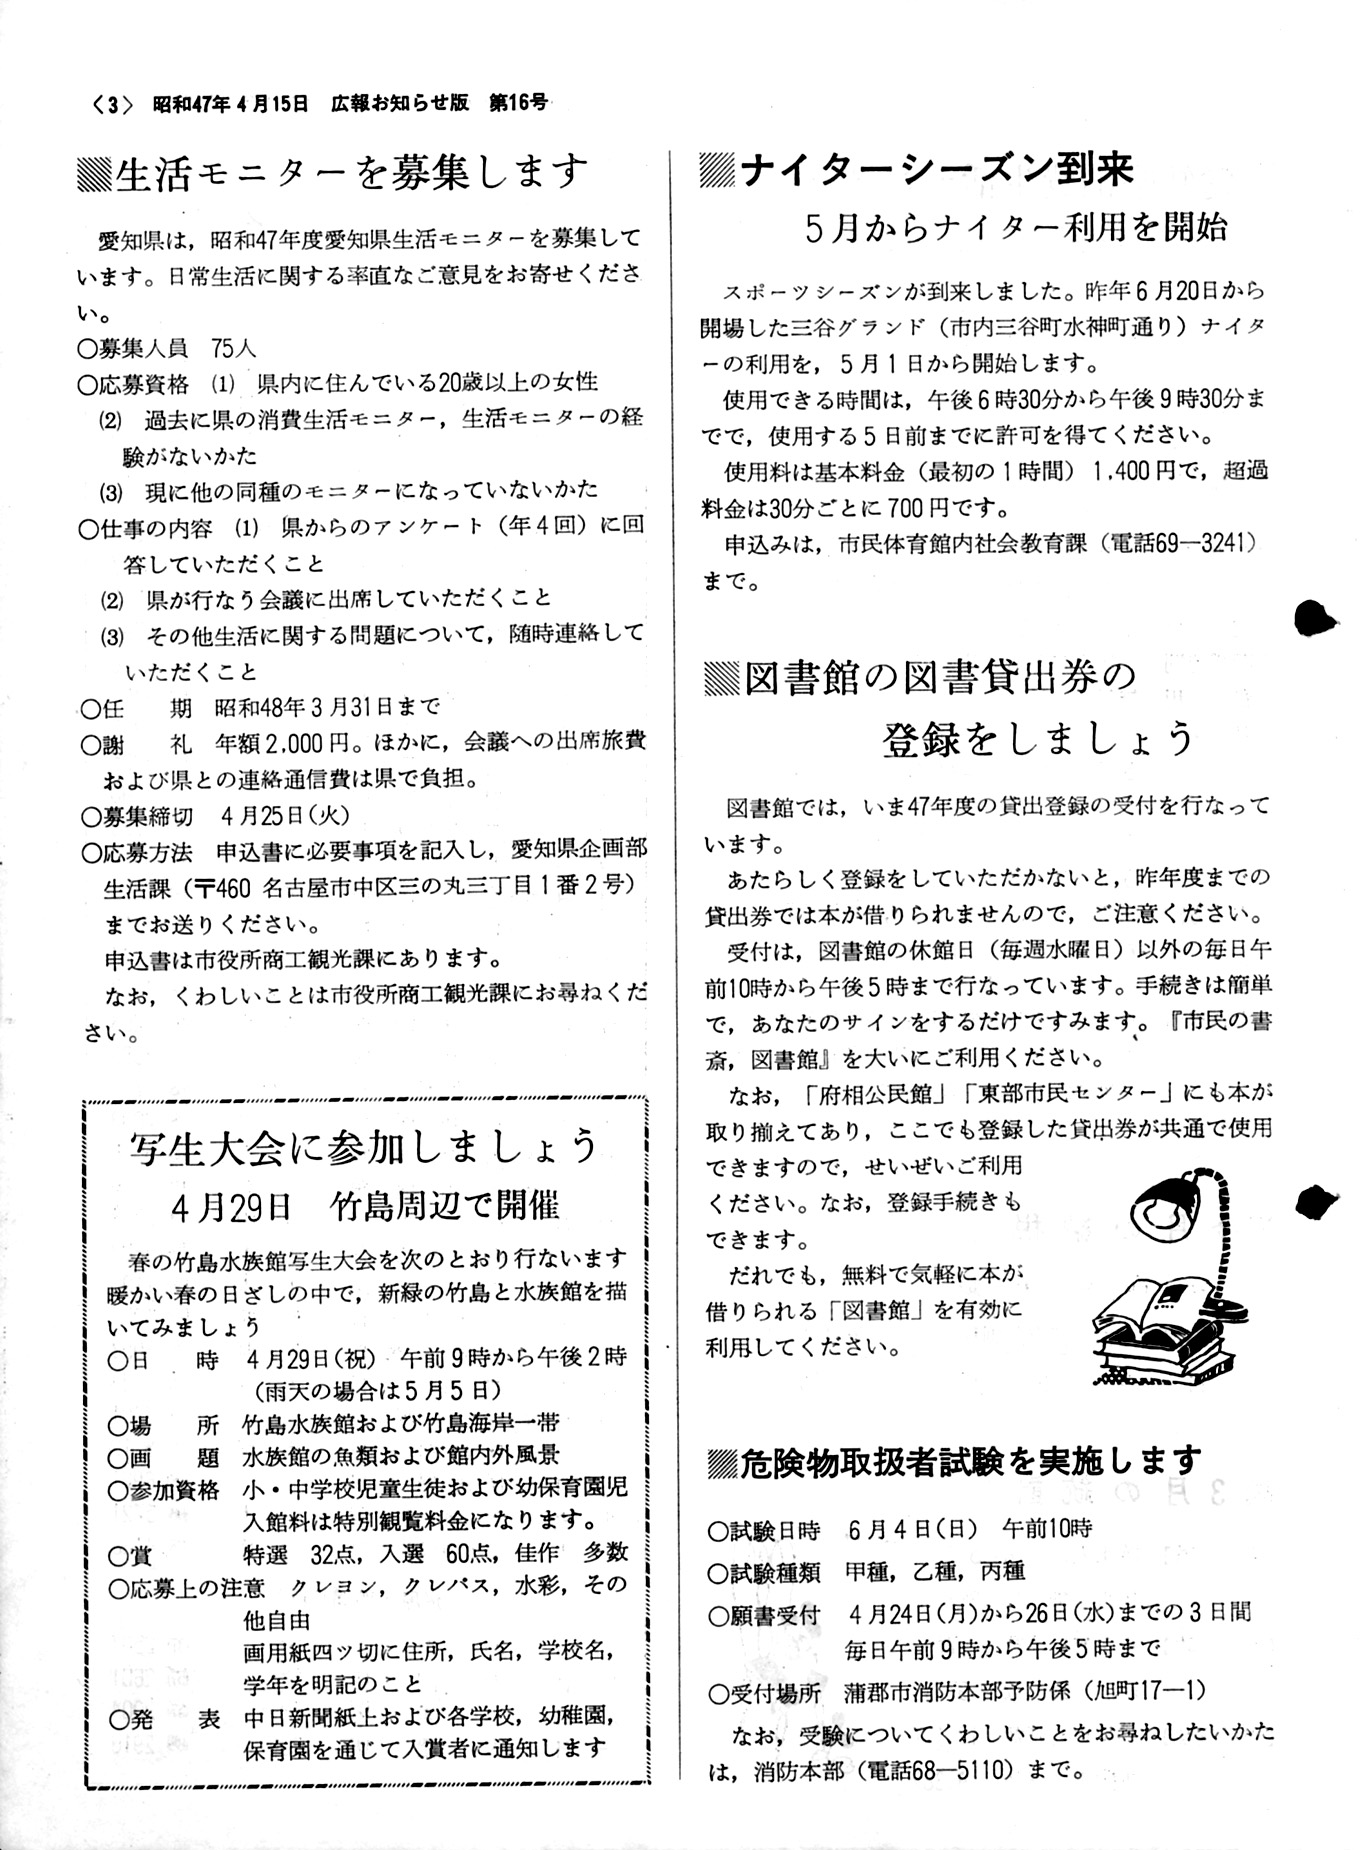 〈3〉 昭和47年4月15日 広報お知らせ版 第16号
生活モニターを募集します
愛知県は，昭和47年度愛知県生活モニターを募集して
います。日常生活に関する率直なご意見をお寄せくださ
い。
○募集人員 75人
○応募資格 ⑴ 県内に住んでいる20歳以上の女性
⑵ 過去に県の消費生活モニター，生活モニターの経
験がないかた
⑶ 現に他の同種のモニターになっていないかた
○仕事の内容 ⑴ 県からのアンケート（年4回）に回
答していただくこと
⑵ 県が行なう会議に出席していただくこと
⑶ その他生活に関する問題について，随時連絡して
いただくこと
○任 期 昭和48年3月31日まで
○謝 礼 年額2,000円。ほかに，会議への出席旅費
および県との連絡通信費は県で負担。
○募集締切 4月25日(火)
○応募方法 申込書に必要事項を記入し，愛知県企画部
生活課（〒460 名古屋市中区三の丸三丁目1番2号）
までお送りください。
申込書は市役所商工観光課にあります。
なお，くわしいことは市役所商工観光課にお尋ねくだ
さい。
写生大会に参加しましょう
4月29日 竹島周辺で開催
春の竹島水族館写生大会を次のとおり行ないます
暖かい春の日ざしの中で，新緑の竹島と水族館を描
いてみましょう
○日 時 4月29日(祝) 午前9時から午後2時
（雨天の場合は5月5日）
○場 所 竹島水族館および竹島海岸一帯
○画 題 水族館の魚類および館内外風景
○参加資格 小・中学校児童生徒および幼保育園児
入館料は特別観覧料金になります。
○賞 特選 32点，入選 60点，佳作 多数
○応募上の注意 クレヨン，クレパス，水彩，その
他自由
画用紙四ツ切に住所，氏名，学校名，
学年を明記のこと
○発 表 中日新聞紙上および各学校，幼稚園，
保育園を通じて入賞者に通知します
ナイターシーズン到来
5月からナイター利用を開始
スポーツシーズンが到来しました。昨年6月20日から
開場した三谷グランド（市内三谷町水神町通り）ナイタ
ーの利用を，5月1日から開始します。
使用できる時間は，午後6時30分から午後9時30分ま
でで，使用する5日前までに許可を得てください。
使用料は基本料金（最初の1時間）1,400円で，超過
料金は30分ごとに700円です。
申込みは，市民体育館内社会教育課（電話69―3241）
まで。
図書館の図書貸出券の
登録をしましょう
図書館では，いま47年度の貸出登録の受付を行なって
います。
あたらしく登録をしていただかないと，昨年度までの
貸出券では本が借りられませんので，ご注意ください。
受付は，図書館の休館日（毎週水曜日）以外の毎日午
前10時から午後5時まで行なっています。手続きは簡単
で，あなたのサインをするだけですみます。『市民の書
斎，図書館』を大いにご利用ください。
なお，「府相公民館」「東部市民センター」にも本が
取り揃えてあり，ここでも登録した貸出券が共通で使用
できますので，せいぜいご利用
ください。なお，登録手続きも
できます。
だれでも，無料で気軽に本が
借りられる「図書館」を有効に
利用してください。
危険物取扱者試験を実施します
○試験日時 6月4日(日) 午前10時
○試験種類 甲種，乙種，丙種
○願書受付 4月24日(月)から26日(水)までの3日間
毎日午前9時から午後5時まで
○受付場所 蒲郡市消防本部予防係（旭町17―1）
なお，受験についてくわしいことをお尋ねしたいかた
は，消防本部（電話68―5110）まで。